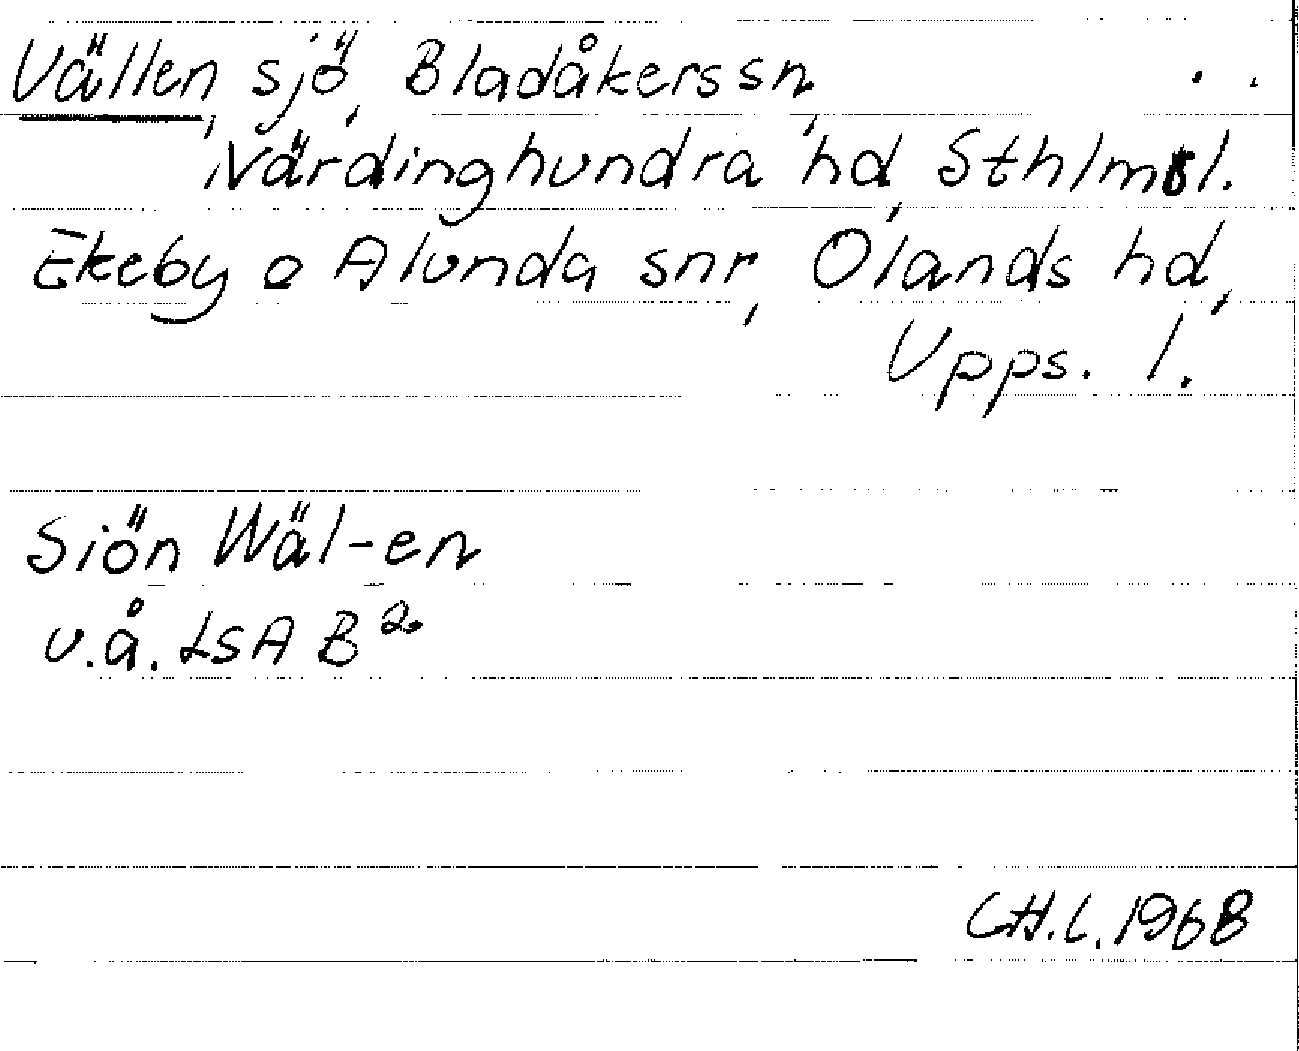 Vällen, sjö, Bladåkers sn,
Närdinghundra hd, Sthlms l.
Ekeby o Alunda snr, Olands hd,
Upps. l.
Siön Wäl-en
u.å. LSA B2
CH.L. 1968